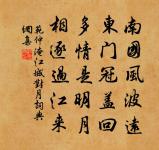 南國風波遠
東門冠蓋回
多情是明月
相逐過江来
范仲淹江城對月詞典
網集